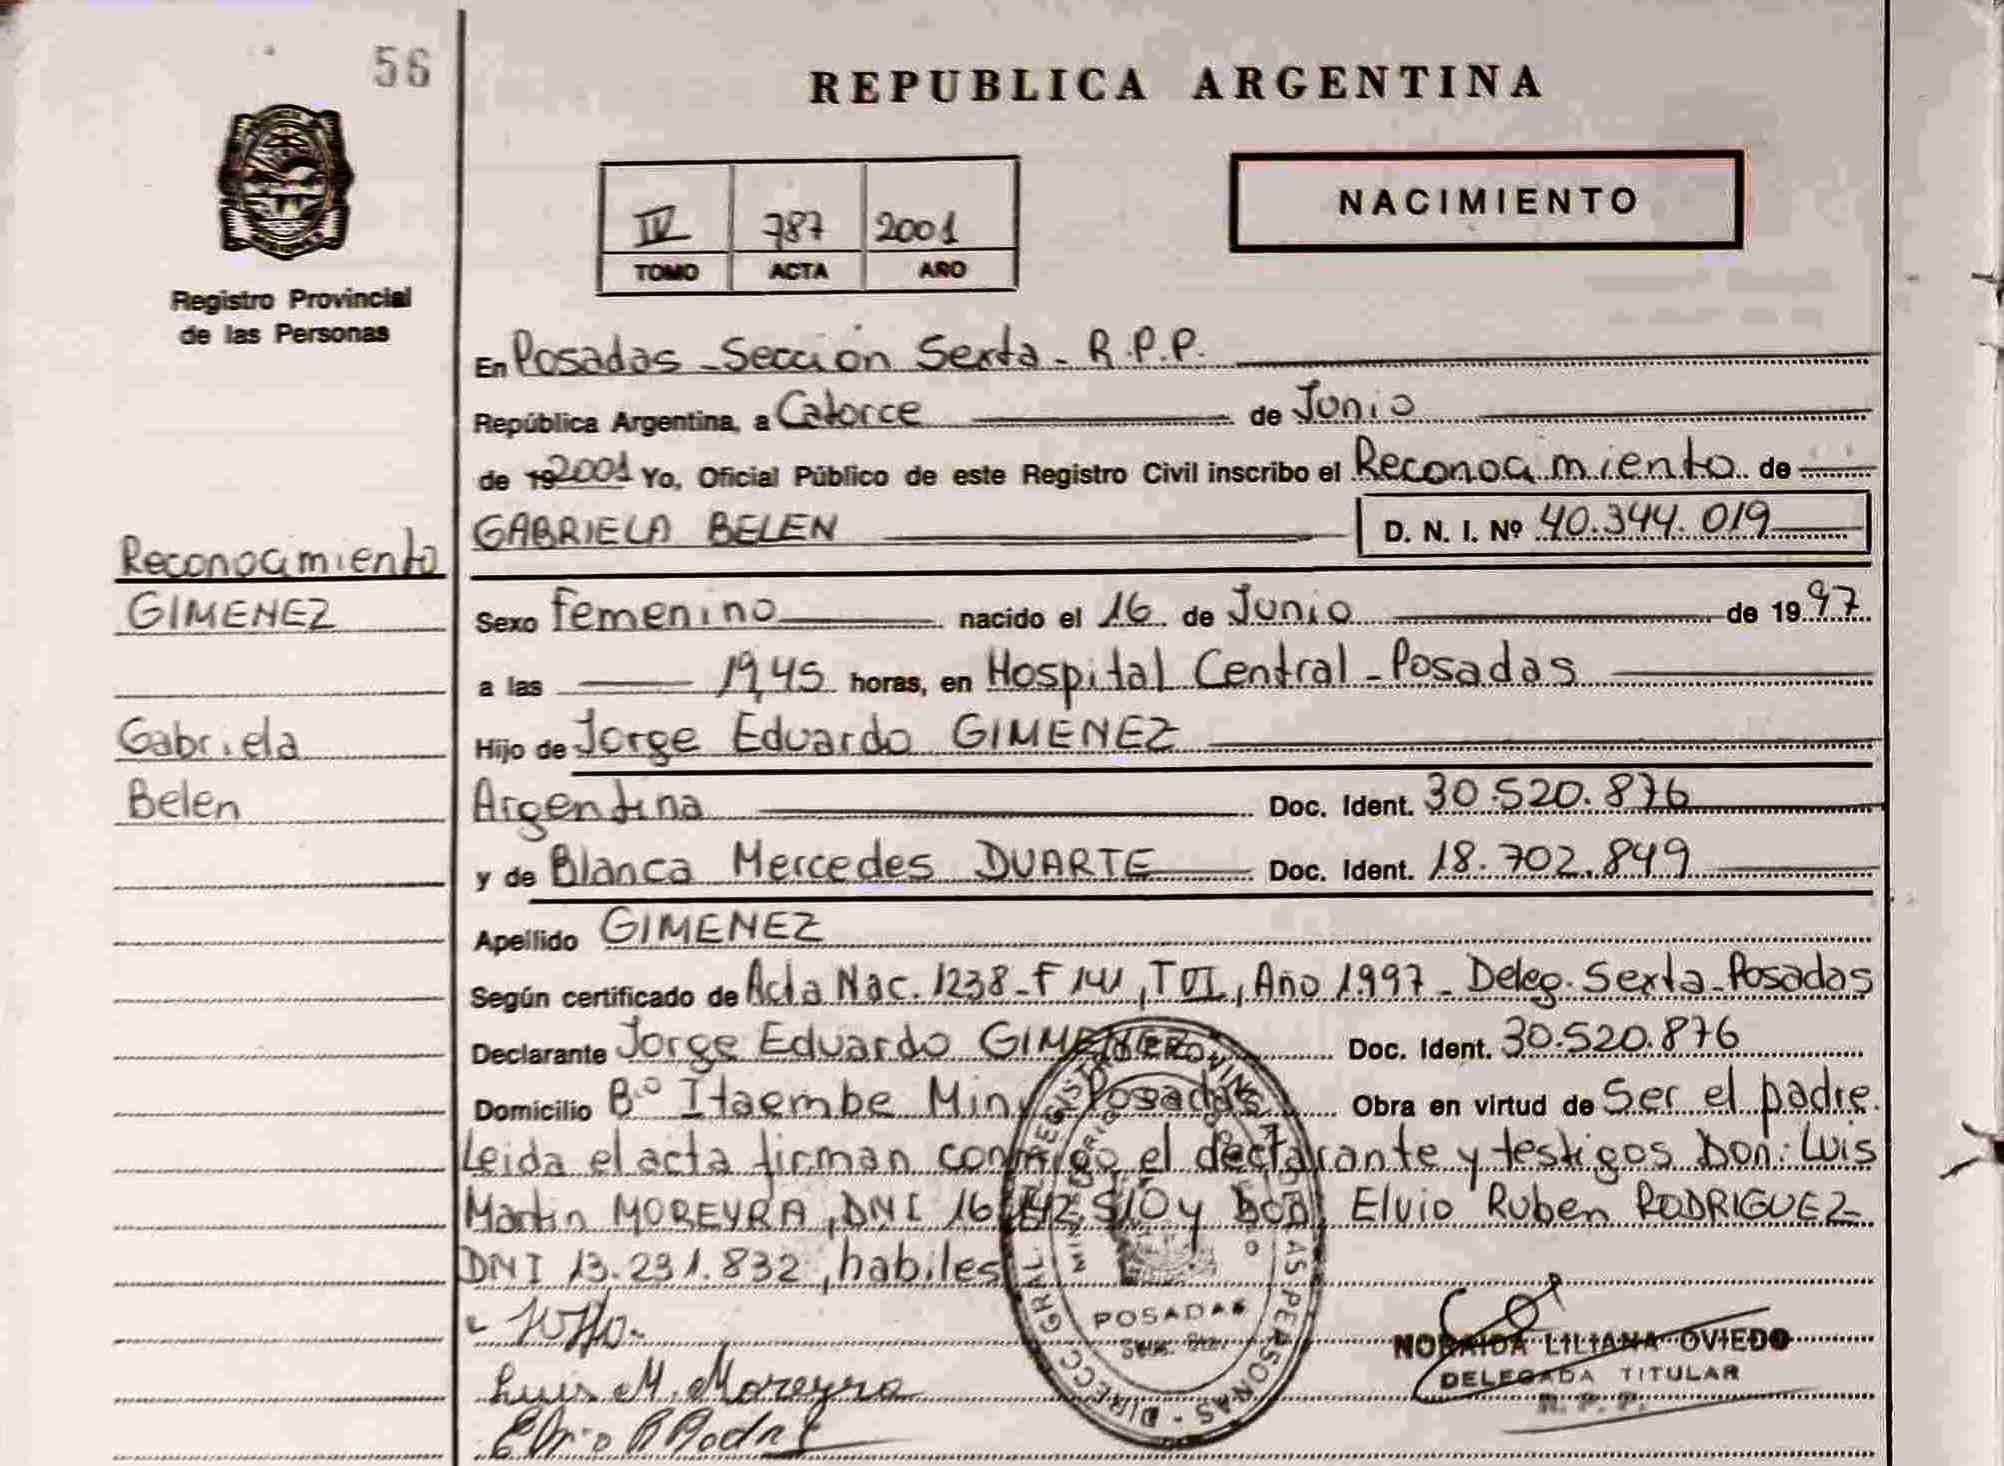 56
REPUBLICA ARGENTINA
NACIMIENTO
IV 787 2001
TOMO ACTA AÑO
Registro Provincial
de las Personas
En Posadas - Sección Sexta - R.P.P.
República Argentina, a Catorce de Junio
de 19 2001 Yo, Oficial Público de este Registro Civil inscribo el Reconocimiento de
GABRIELA BELEN D. N. I. Nº 40.344.019
Reconocimiento
GIMENEZ
Gabriela
Belen
Sexo Femenino nacido el 16 de Junio de 1997
a las 19,45 horas, en Hospital Central - Posadas
Hijo de Jorge Eduardo GIMENEZ
Argentina Doc. Ident. 30.520.876
y de Blanca Mercedes DUARTE Doc. Ident. 18.702.849
Apellido GIMENEZ
Según certificado de Acta Nac. 1238 - F 141, T VI, Año 1997 - Deleg. Sexta - Posadas
Declarante Jorge Eduardo GIMENEZ Doc. Ident. 30.520.876
Domicilio Bº Itaembe Mini Posadas Obra en virtud de Ser el padre.
Leida el acta firman conmigo el declarante y testigos Don: Luis
Martin MOREYRA, DNI 16. y Don Elvio Ruben RODRIGUEZ
DNI 13.231.832, habiles
Luis M. Moreyra
POSADAS
NORAIDA LILIANA OVIEDO
DELEGADA TITULAR
R. P. P.